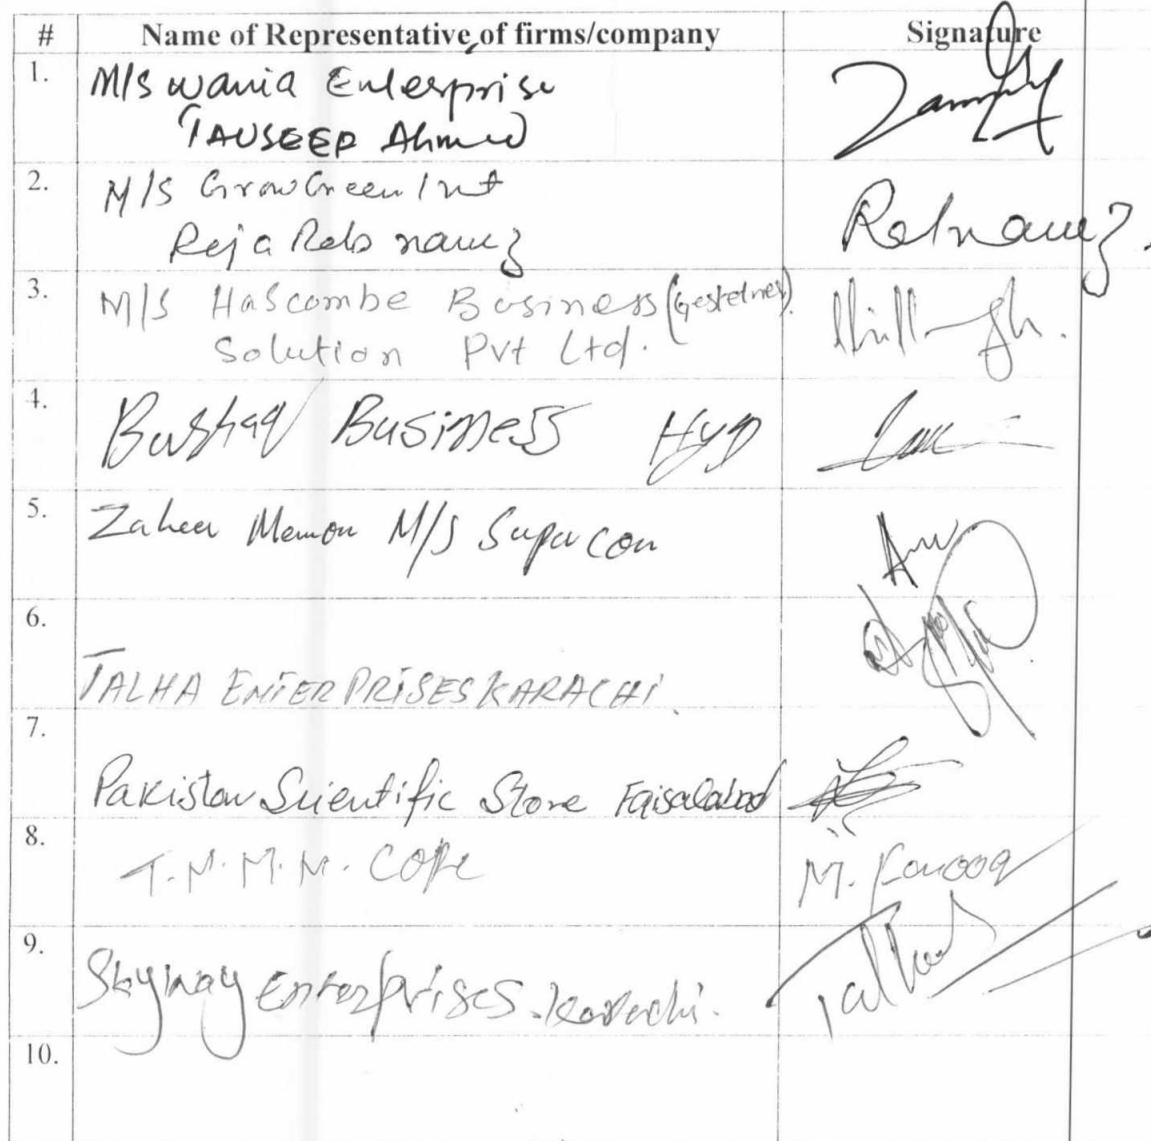 # Name of Representative of firms/company Signature
1. M/S wania Enterprise
TAUSEEF Ahmed
2. M/S GrowGreen Int
Reja Rab nawaz Rabnawaz
3. M/S Hascombe Business (Gestetner)
Solution Pvt Ltd.
4. Bushaq Business Hyd
5. Zaheer Memon M/S Supercon
6.
TALHA ENTERPRISES KARACHI.
7.
Pakistan Scientific Store Faisalabad
8. T.N.M.N. COPE M. Farooq
9. Skyway Enterprises. Karachi. Talha
10.